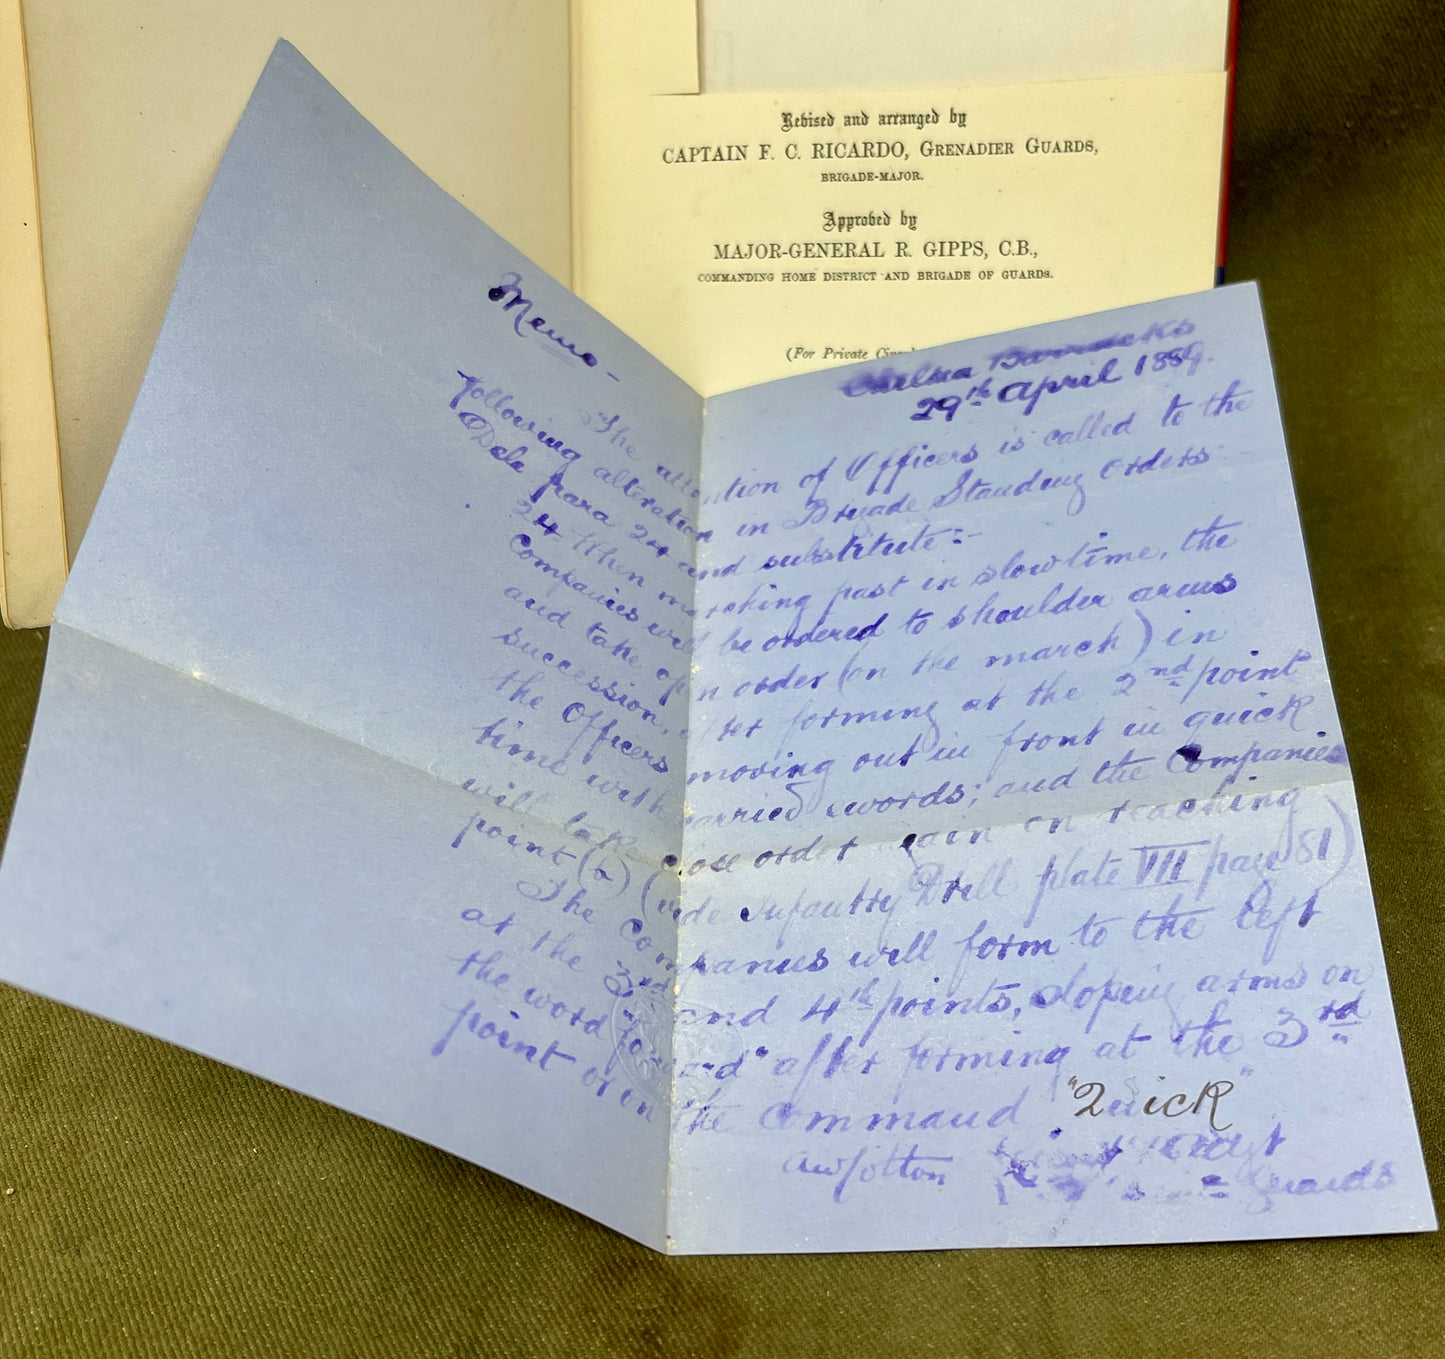 Revised and arranged by
CAPTAIN F. C. RICARDO, GRENADIER GUARDS,
BRIGADE-MAJOR.
Approved by
MAJOR-GENERAL R. GIPPS, C.B.,
COMMANDING HOME DISTRICT AND BRIGADE OF GUARDS.
(For Private
Memo-
Chelsea Barracks
29th April 1889.
The attention of Officers is called to the
following alteration in Brigade Standing Orders:-
Dele para 24 and substitute:-
24 When marching past in slow time, the
Companies will be ordered to shoulder arms
and take open order (on the march) in
succession, after forming at the 2nd point
the Officers moving out in front in quick
time with carried swords; and the Companies
will take close order again on reaching
point (2) (vide Infantry Drill plate VII page 81)
The Companies will form to the left
at the 3rd and 4th points, sloping arms on
the word "forward" after forming at the 3rd
point or on the command "Quick"
Guards